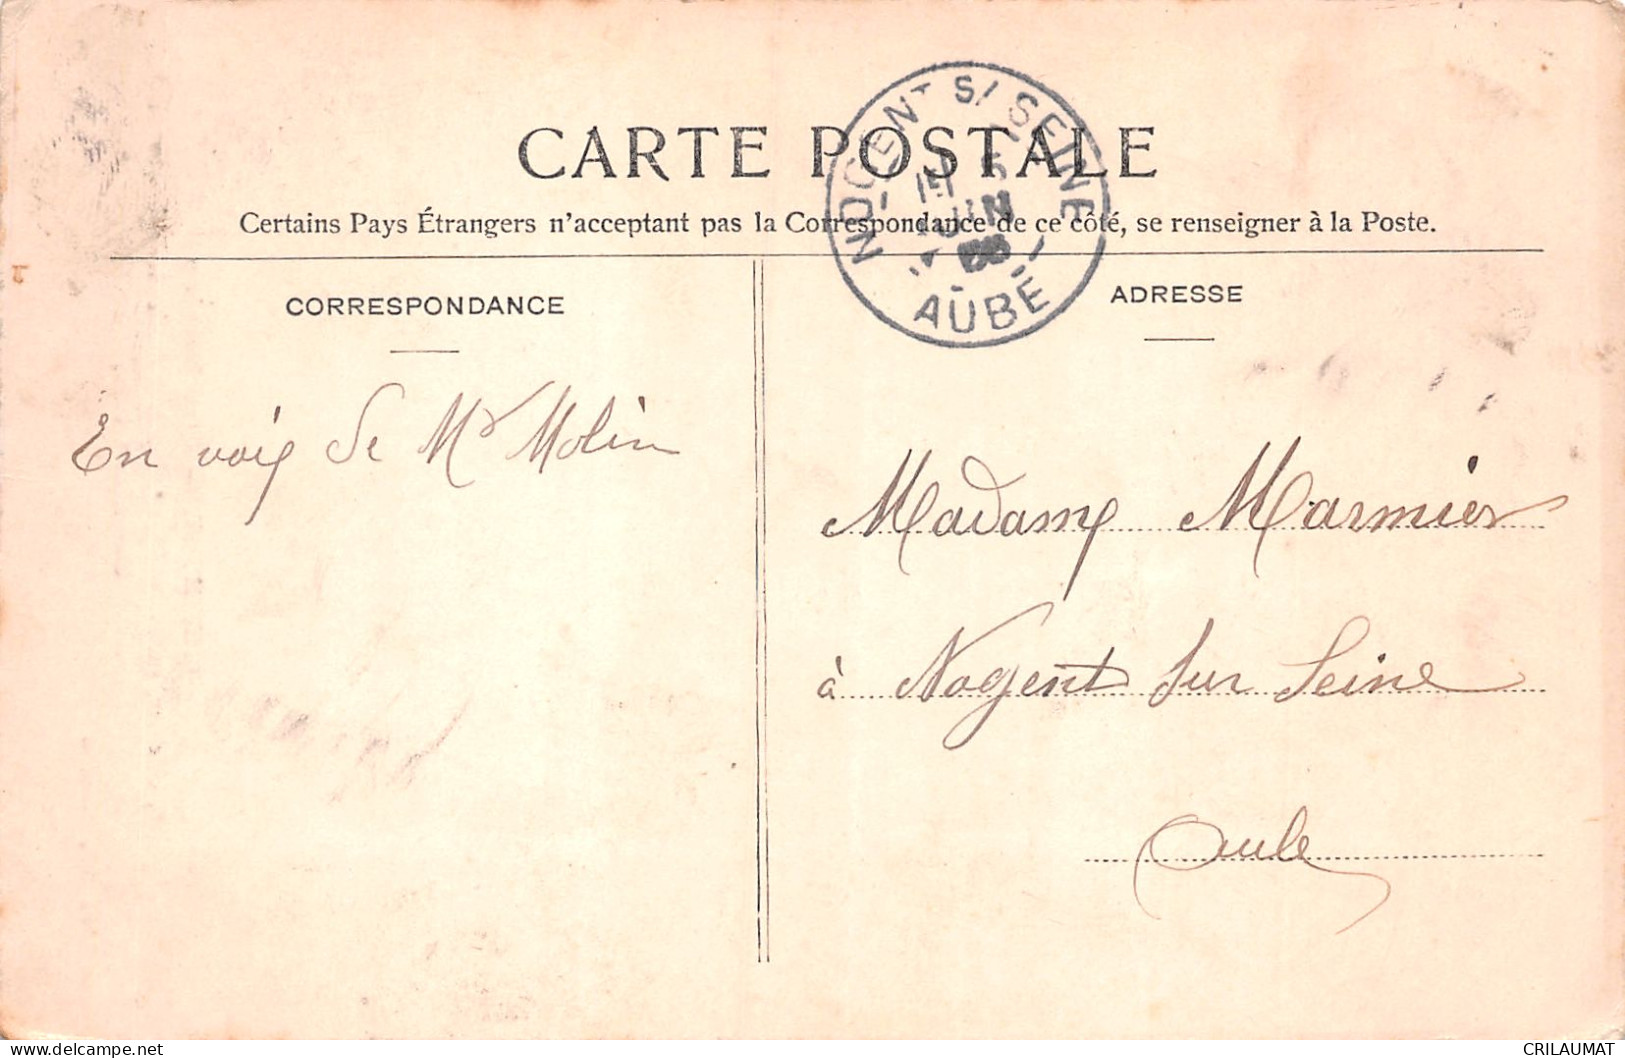 NOGENT S/ SEINE
JUIN
AUBE
CARTE POSTALE
Certains Pays Étrangers n'acceptant pas la Correspondance de ce côté, se renseigner à la Poste.
CORRESPONDANCE
En voie de Mr Molin
ADRESSE
Madame Marmier
à Nogent sur Seine
Aube
CRILAUMAT